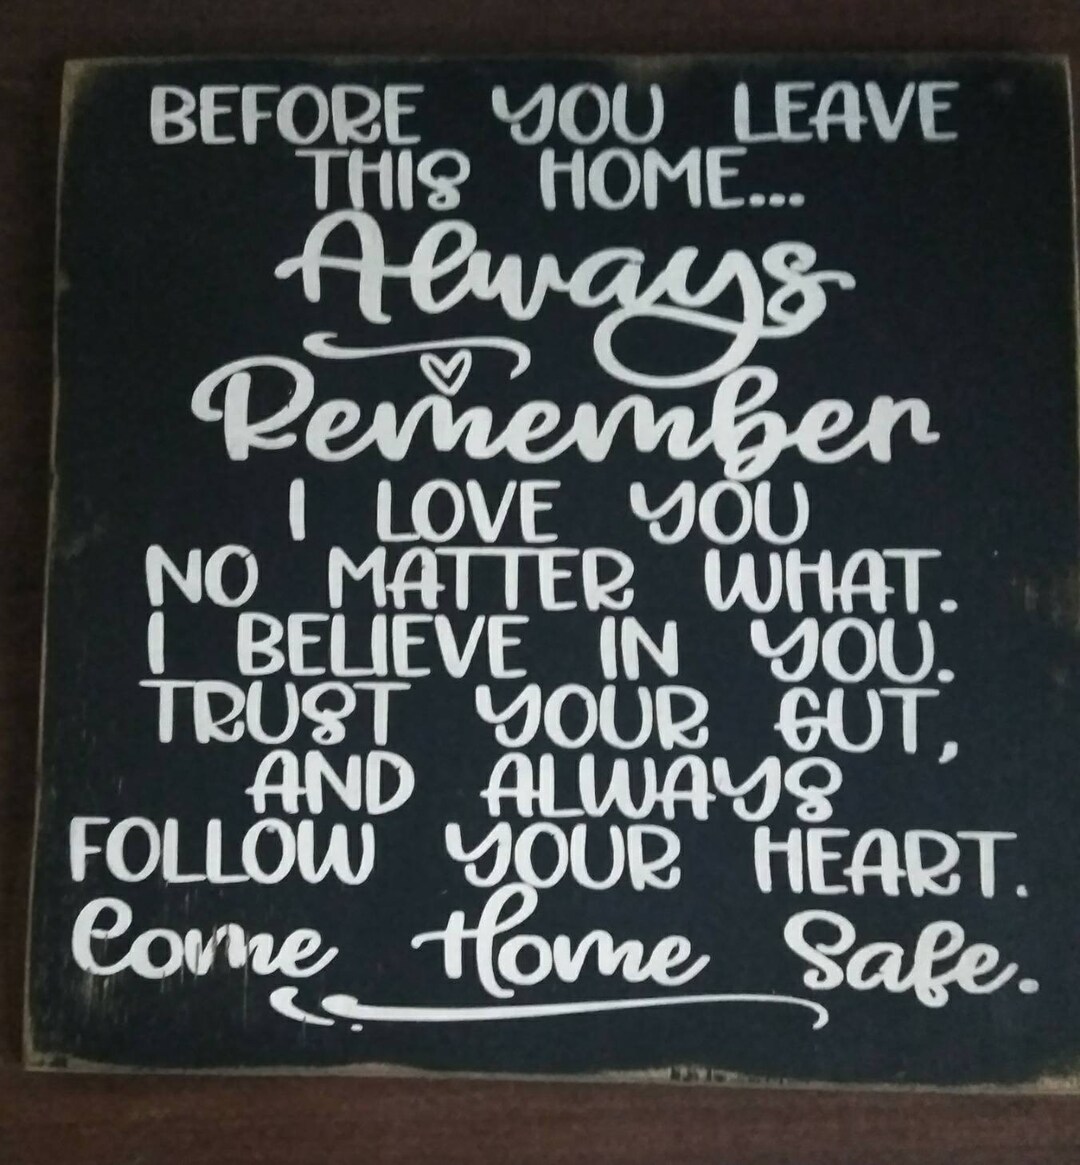 BEFORE YOU LEAVE
THIS HOME...
Always
Remember
I LOVE YOU
NO MATTER WHAT.
I BELIEVE IN YOU.
TRUST YOUR GUT,
AND ALWAYS
FOLLOW YOUR HEART.
Come Home Safe.